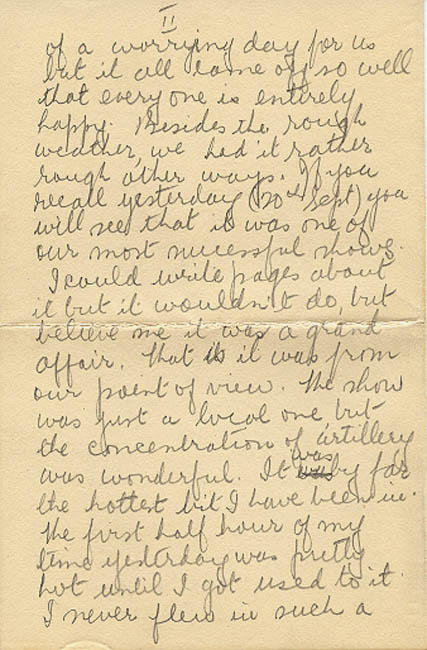 II
of a worrying day for us
but it all came off so well
that everyone is entirely
happy. Besides the rough
weather, we had it rather
rough other ways. If you
recall yesterday (20th Sept) you
will see that it was one of
our most successful shows.
I could write pages about
it but it wouldn't do, but
believe me it was a grand
affair. That is it was from
our point of view. The show
was just a local one but
the concentration of artillery
was wonderful. It was by far
the hottest bit I have been in.
The first half hour of my
time yesterday was pretty
hot until I got used to it.
I never flew in such a